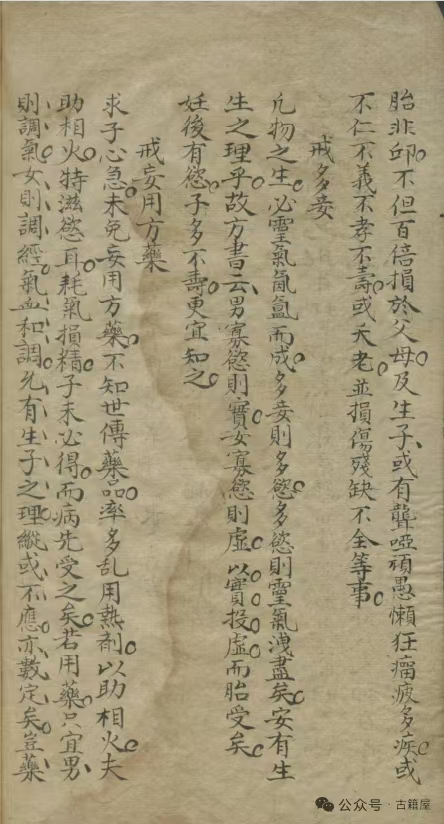 胎非卬不但百倍損於父母及生子或有聾啞頑愚懶狂痴疲多疾或
不仁不義不孝不壽或夭老並損傷殘缺不全等事
戒多妾
凢物之生必𤫊氣氤氳而成多妾則多慾多慾則𤫊氣洩盡矣安有生
生之理乎故方書云男寡慾則實女寡慾則虛以實投虛而胎受矣
妊後有慾子多不壽更宜知之
戒妄用方藥
求子心急未免妄用方藥不知世傳藥品率多乱用熱剤以助相火夫
助相火特滋慾耳耗氣損精子未必得而病先受之矣若用藥只宜男
則調氣女則調經氣血和調尢有生子之理縱或不應亦數定矣豈藥
公众号·古籍屋